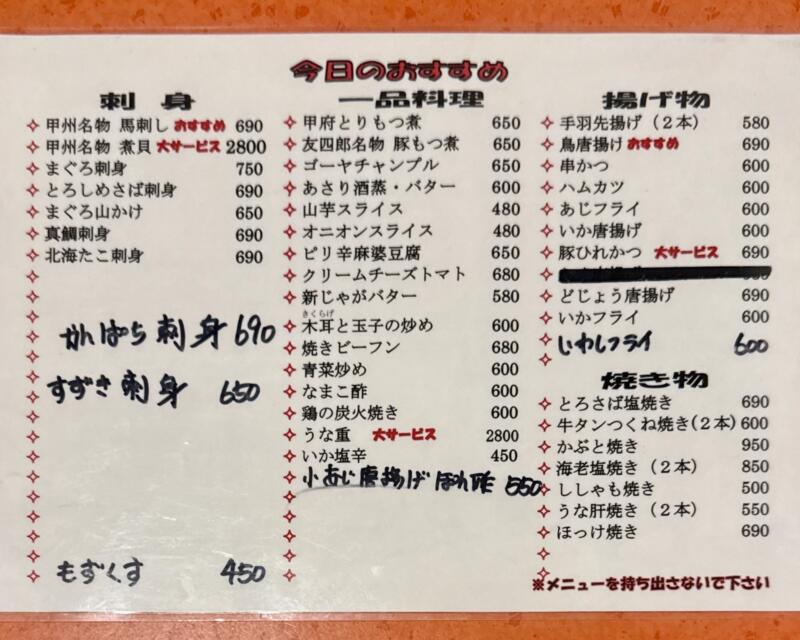 今日のおすすめ
刺身
甲州名物 馬刺し おすすめ 690
甲州名物 煮貝 大サービス 2800
まぐろ刺身 750
とろしめさば刺身 690
まぐろ山かけ 650
真鯛刺身 690
北海たこ刺身 690
かんぱち刺身 690
すずき刺身 650
もずくす 450
一品料理
甲府とりもつ煮 650
友四郎名物 豚もつ煮 650
ゴーヤチャンプル 650
あさり酒蒸・バター 600
山芋スライス 480
オニオンスライス 480
ピリ辛麻婆豆腐 650
クリームチーズトマト 680
新じゃがバター 580
きくらげ
木耳と玉子の炒め 600
焼きビーフン 680
青菜炒め 600
なまこ酢 600
鶏の炭火焼き 600
うな重 大サービス 2800
いか塩辛 450
小あじ唐揚げ ぽん酢 550
揚げ物
手羽先揚げ（２本） 580
鳥唐揚げ おすすめ 690
串かつ 600
ハムカツ 600
あじフライ 600
いか唐揚げ 600
豚ひれかつ 大サービス 690
どじょう唐揚げ 690
いかフライ 600
いわしフライ 600
焼き物
とろさば塩焼き 690
牛タンつくね焼き(２本) 600
かぶと焼き 950
海老塩焼き（２本） 850
ししゃも焼き 500
うな肝焼き（２本） 550
ほっけ焼き 690
※メニューを持ち出さないで下さい